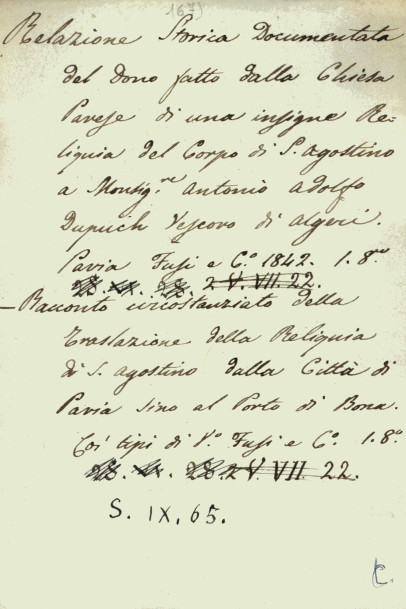 167)
Relazione Storica Documentata
del dono fatto dalla Chiesa
Pavese di una insigne Re-
liquia del Corpo di S. Agostino
a Monsig.re Antonio Adolfo
Dupuch Vescovo di Algeri.
Pavia Fusi e C.o 1842. 1. 8.o
2 V. VII. 22.
— Racconto circostanziato della
Traslazione della Reliquia
di S. Agostino dalla Città di
Pavia sino al Porto di Bona.
Coi tipi di Fusi e C.o 1. 8.o
V. VII. 22.
S. IX. 65.